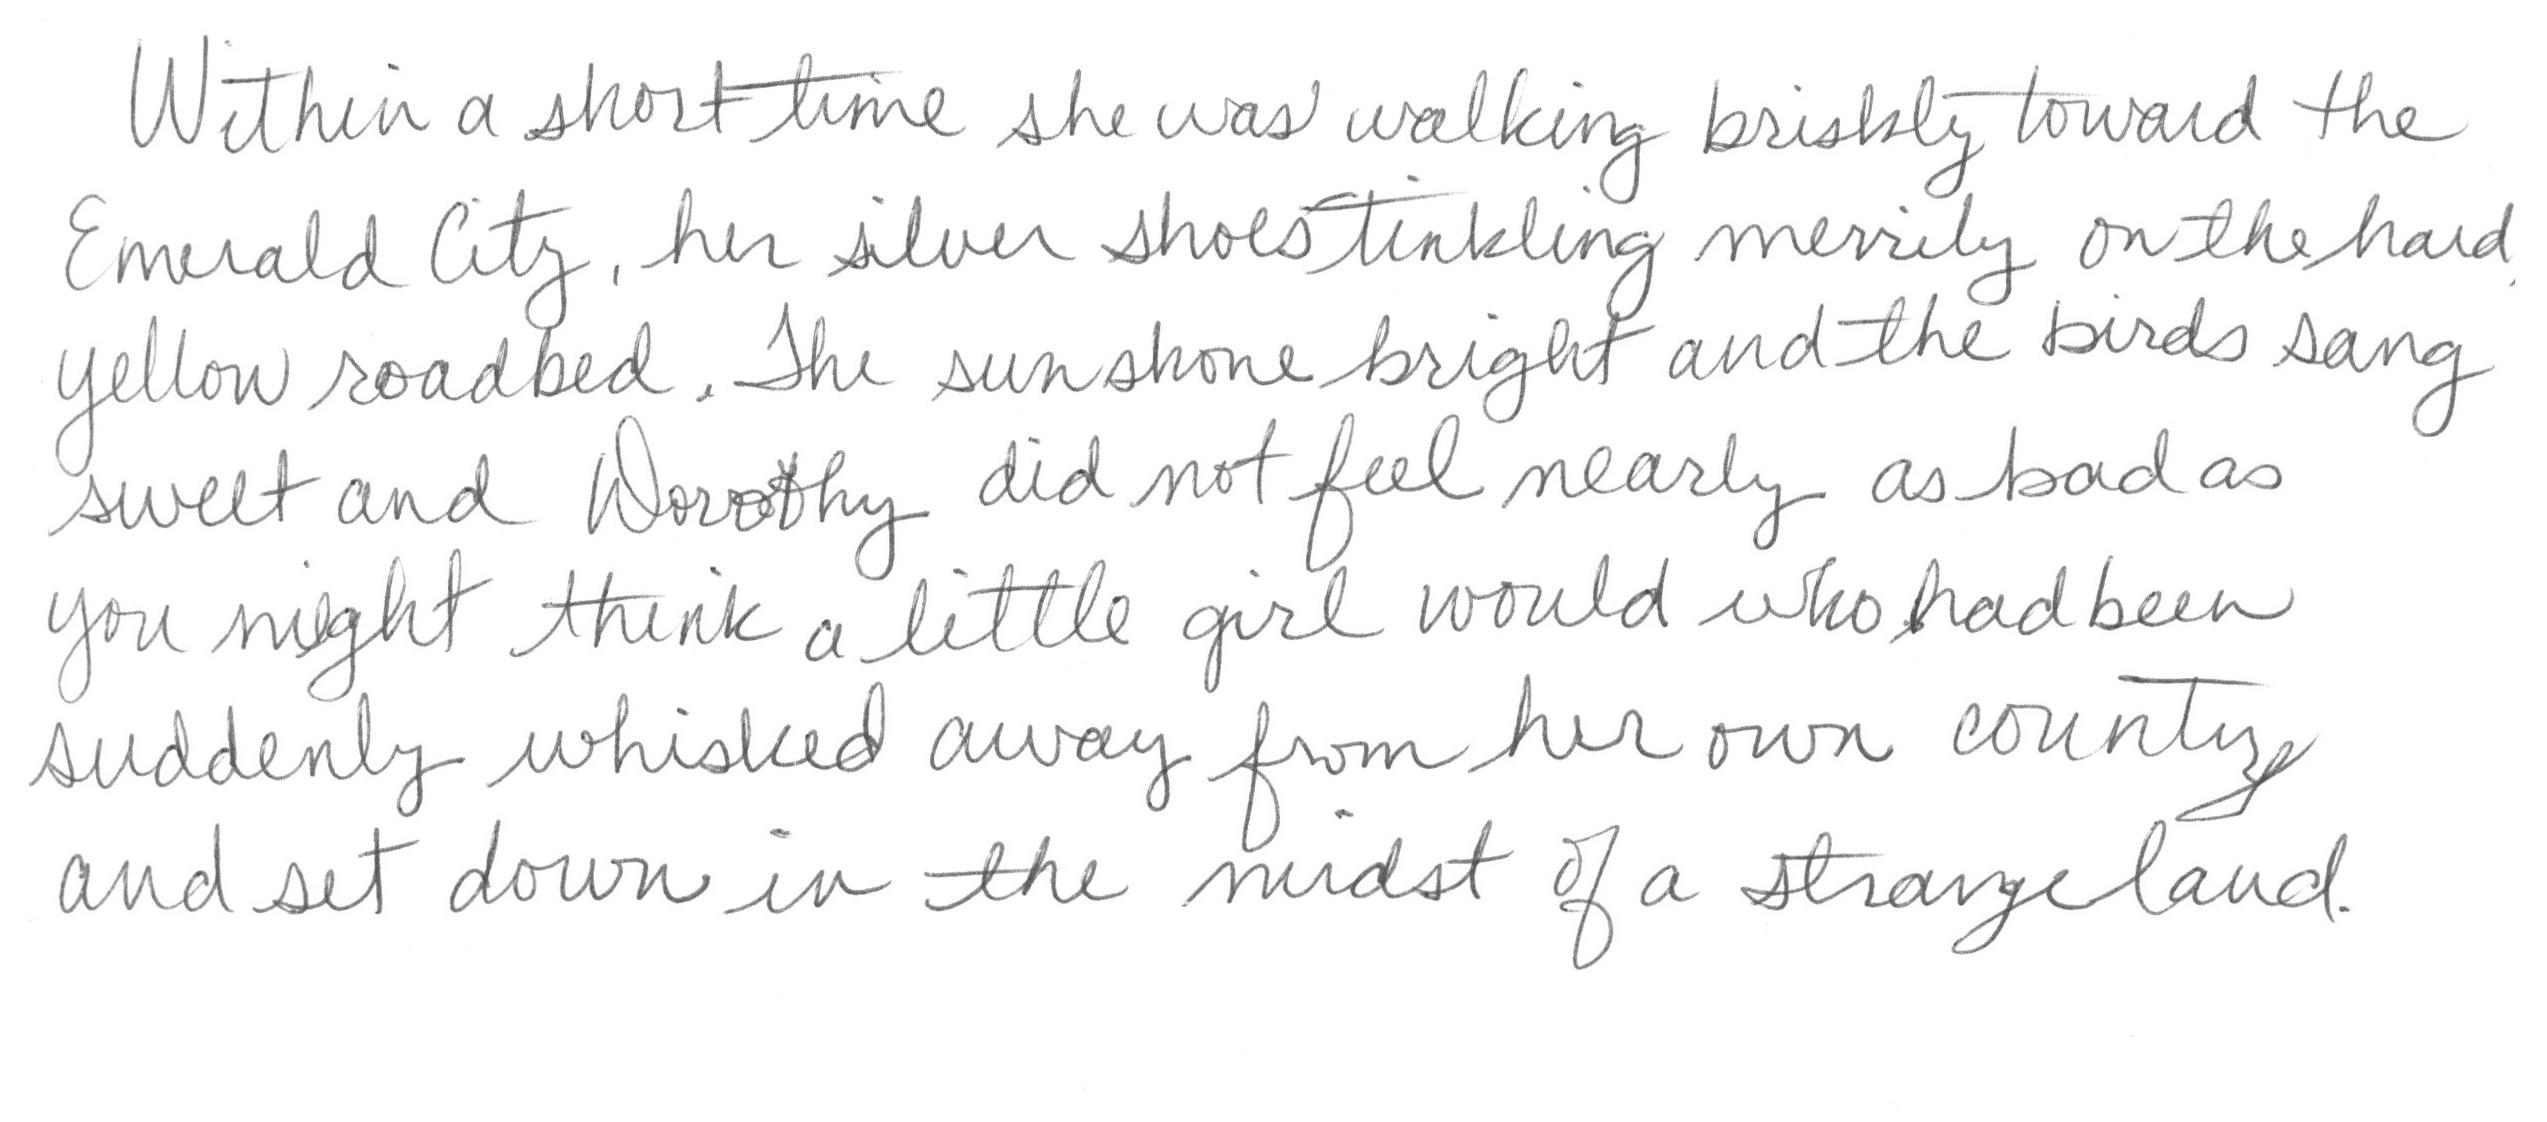 Within a short time she was walking briskly toward the
Emerald City, her silver shoes tinkling merrily on the hard,
yellow roadbed. The sun shone bright and the birds sang
sweet and Dorothy did not feel nearly as bad as
you might think a little girl would who had been
suddenly whisked away from her own county
and set down in the midst of a strange land.